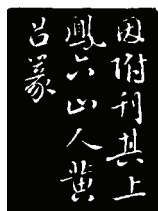 因附刊其上
鳳六山人黄
吕篆